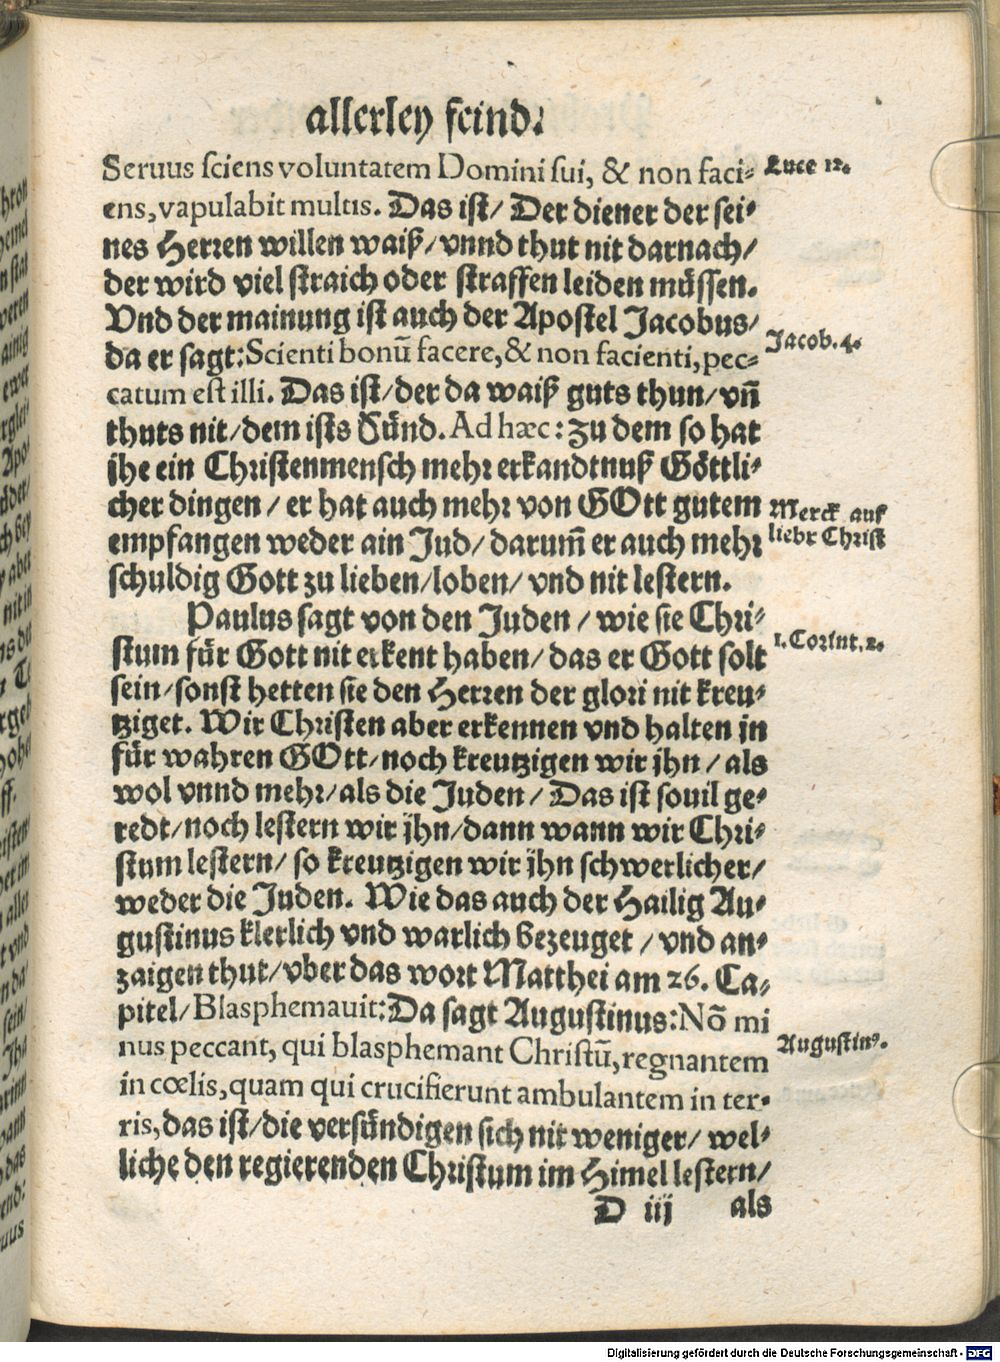 allerley feind.
Seruus sciens voluntatem Domini sui, & non faci-
Luce 12.
ens, vapulabit multis. Das ist/ Der diener der sei-
nes Herren willen waiß/ vnnd thut nit darnach/
der wird viel straich oder straffen leiden müssen.
Vnd der mainung ist auch der Apostel Jacobus/
Jacob. 4.
da er sagt: Scienti bonū facere, & non facienti, pec-
catum est illi. Das ist/ der da waiß guts thun/ vñ
thuts nit/ dem ists Sünd. Ad hæc: zu dem so hat
jhe ein Christenmensch mehr erkandtnuß Göttli-
cher dingen/ er hat auch mehr von GOtt gutem
Merck auf
empfangen weder ain Jud/ darum̄ er auch mehr
liebr Christ
schuldig Gott zu lieben/ loben/ vnd nit lestern.
Paulus sagt von den Juden/ wie sie Chri-
1. Corint. 2.
stum für Gott nit erkent haben/ das er Gott solt
sein/ sonst hetten sie den Herren der glori nit kreu-
tziget. Wir Christen aber erkennen vnd halten jn
für wahren GOtt/ noch kreutzigen wir jhn/ als
wol vnnd mehr/ als die Juden/ Das ist souil ge-
redt/ noch lestern wir jhn/ dann wann wir Chri-
stum lestern/ so kreutzigen wir jhn schwerlicher/
weder die Juden. Wie das auch der Hailig Au-
gustinus klerlich vnd warlich bezeuget/ vnd an-
zaigen thut/ vber das wort Matthei am 26. Ca-
pitel/ Blasphemauit: Da sagt Augustinus: Nō mi
nus peccant, qui blasphemant Christū, regnantem
Augustin⁹.
in cœlis, quam qui crucifierunt ambulantem in ter-
ris, das ist/ die versündigen sich nit weniger/ wel-
liche den regierenden Christum im Himel lestern/
D iij als
Digitalisierung gefördert durch die Deutsche Forschungsgemeinschaft - DFG